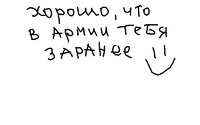 хорошо, что
в Армии тебя
заранее !!